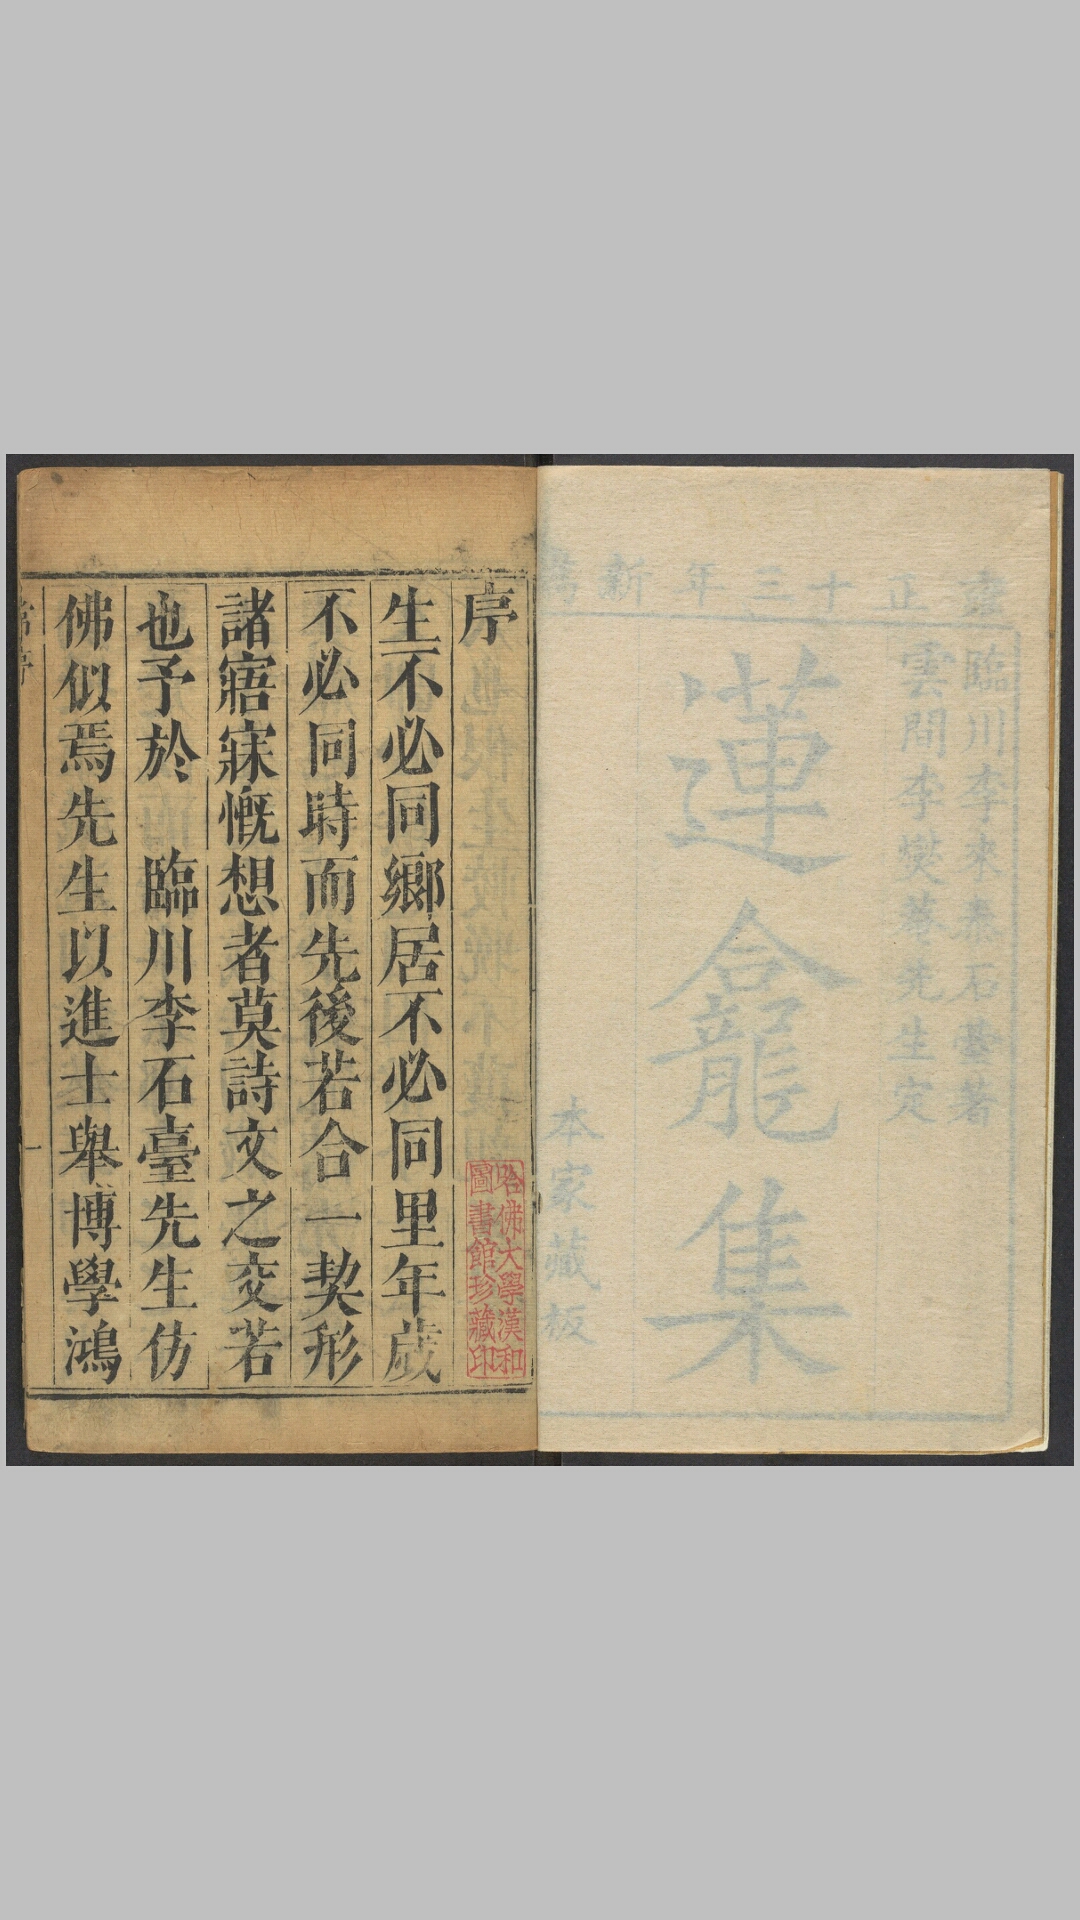 雍正十三年新鐫
臨川李來泰石臺著
雲間李爕菴先生定
蓮龕集
本家藏板
序
哈佛大學漢和
圖書館珍藏印
生不必同鄉居不必同里年歲
不必同時而先後若合一契形
諸寤寐慨想者莫詩文之交若
也予於 臨川李石臺先生仿
佛似焉先生以進士舉博學鴻